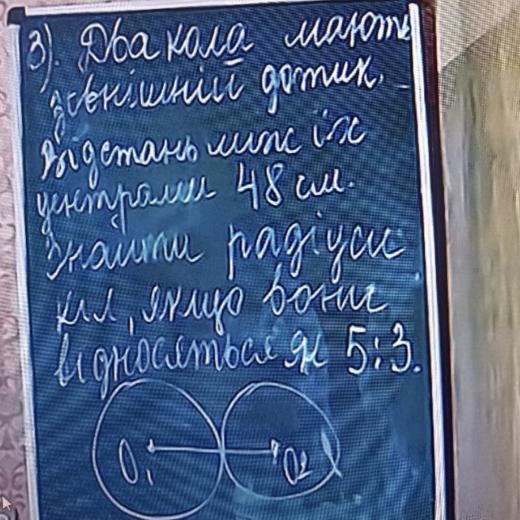 3). Два кола мають
зовнішній дотик.
Відстань між їх
центрами 48 см.
Знайти радіуси
кіл, якщо вони
відносяться як 5:3.
O₁ O₂